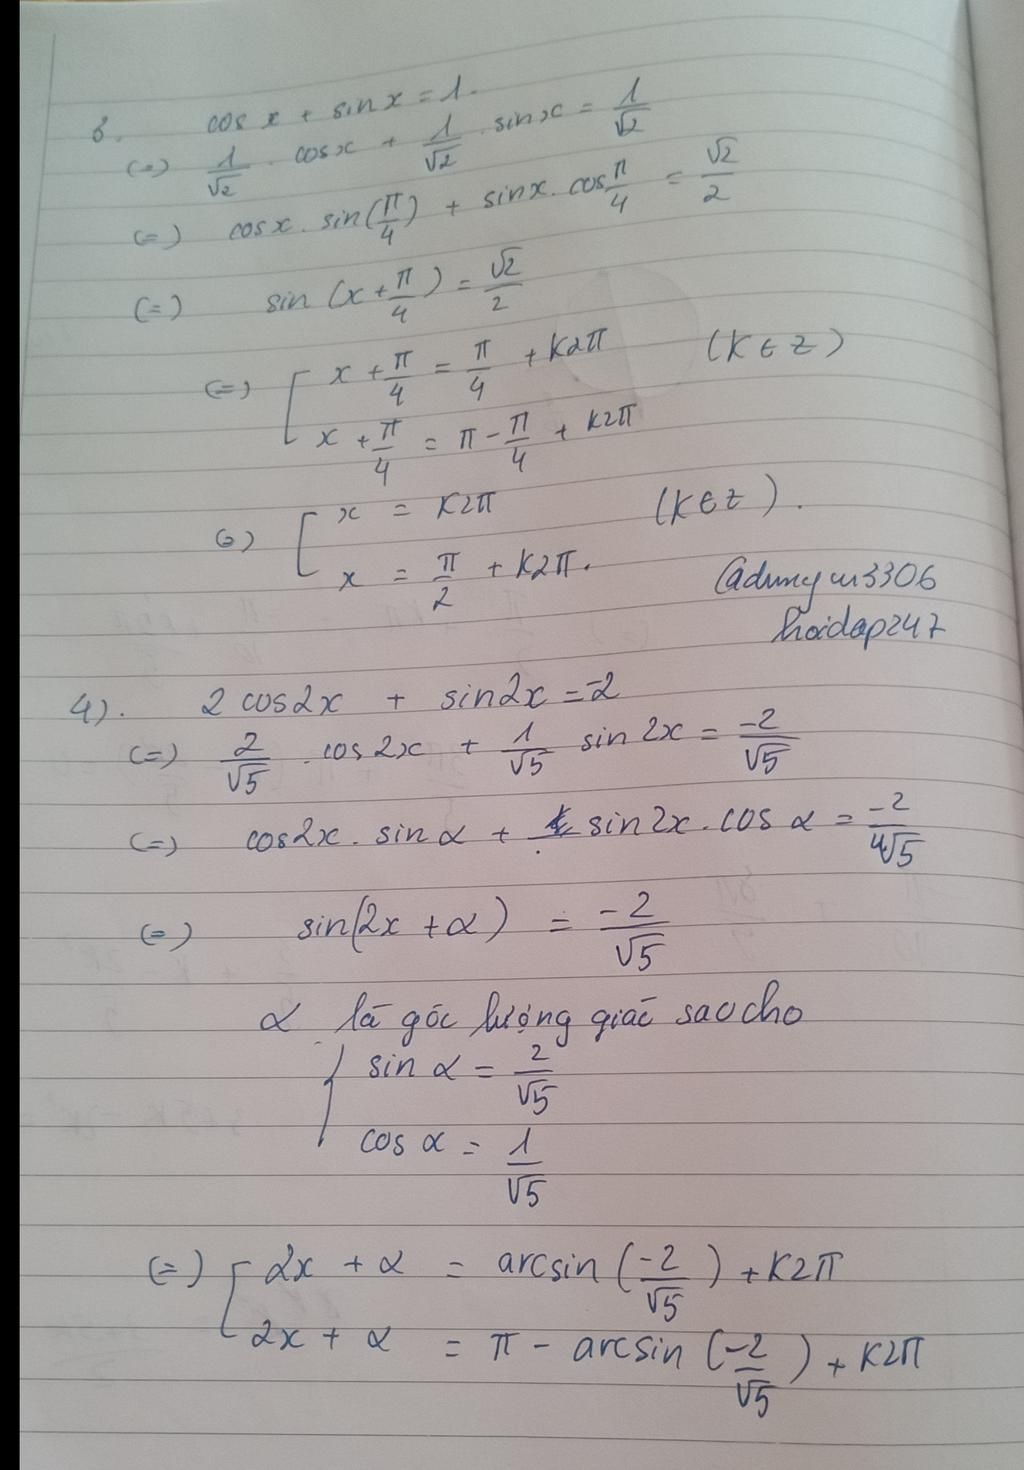 6. cos x + sin x = 1.
(=) 1/√2 . cosx + 1/√2 . sinx = 1/√2
(=) cosx . sin(π/4) + sinx . cos π/4 = √2/2
(=) sin (x + π/4) = √2/2
(=) [ x + π/4 = π/4 + k2π (k ∈ z)
x + π/4 = π - π/4 + k2π
(=) [ x = k2π (k ∈ z).
x = π/2 + k2π.
hoidap247
4). 2 cos2x + sin2x = -2
(=) 2/√5 . cos 2x + 1/√5 sin 2x = -2/√5
(=) cos2x . sin α + sin2x . cos α = -2/√5
(=) sin(2x + α) = -2/√5
α là góc lượng giác sao cho
{ sin α = 2/√5
cos α = 1/√5
(=) [ 2x + α = arcsin (-2/√5) + k2π
2x + α = π - arcsin (-2/√5) + k2π